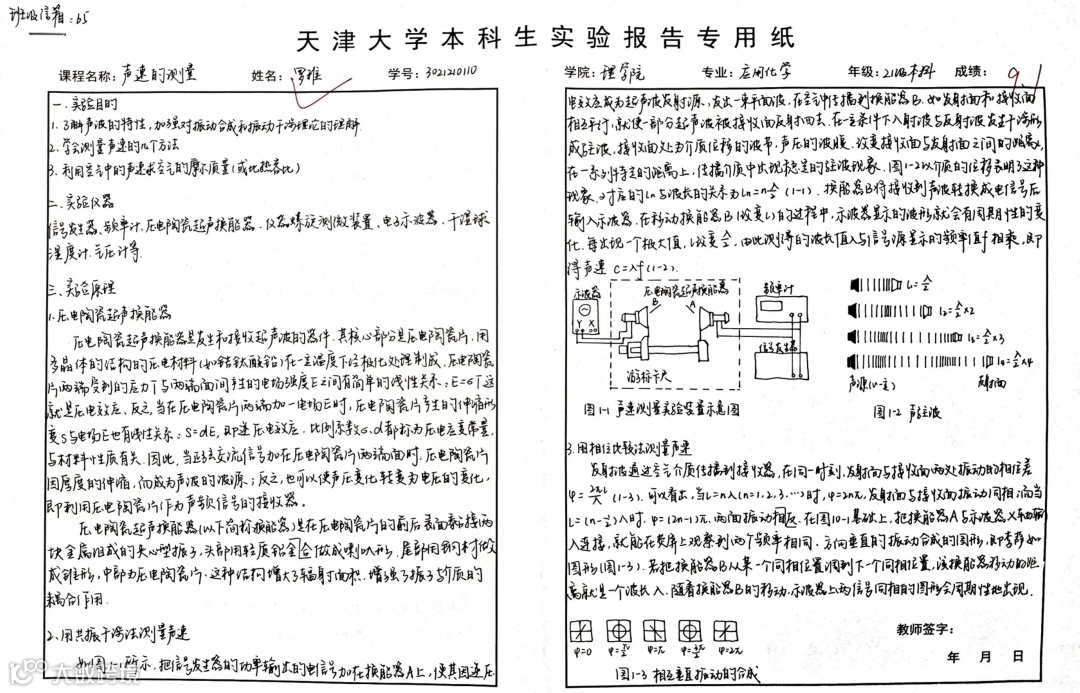 班级信箱:65
天津大学本科生实验报告专用纸
课程名称:声速的测量 姓名:罗雅 学号:3021210110
学院:理学院 专业:应用化学 年级:21级本科 成绩:91
一.实验目的
1.了解声波的特性,加强对振动合成和振动干涉理论的理解
2.学会测量声速的几个方法
3.利用空气中的声速求空气的摩尔质量(或比热容比)
二.实验仪器
信号发生器、频率计、压电陶瓷超声换能器、仪器螺旋测微装置、电子示波器、干湿球
湿度计、气压计等.
三.实验原理
1.压电陶瓷超声换能器
压电陶瓷超声换能器是发生和接收超声波的器件,其核心部分是压电陶瓷片,用
多晶体的结构的压电材料(如锆钛酸铅)在一定温度下经极化处理制成.压电陶瓷
片两端受到的应力T与两端面间产生的电场强度E之间有简单的线性关系:E=σT.这
就是压电效应、反之,当在压电陶瓷片两端加一电场E时,压电陶瓷片产生的伸缩形
变S与电场E也有线性关系:S=dE,即逆压电效应.比例系数σ、d都称为压电应变常量,
与材料性质有关.因此,当正弦交流信号加在压电陶瓷片两端面时,压电陶瓷片
因厚度的伸缩,而成为声波的波源;反之,也可以使声压变化转变为电压的变化,
即利用压电陶瓷片作为声频信号的接收器。
压电陶瓷超声换能器(以下简称换能器)是在压电陶瓷片的前后表面黏接两
块金属组成的夹心型振子,头部用轻质铝合金做成喇叭形.尾部用钢材做
成锥形,中部为压电陶瓷片.这种结构增大了辐射面积,增强了振子与介质的
耦合作用.
2.用共振干涉法测量声速
如图1-1所示,把信号发生器的功率输出的电信号加在换能器A上,使其因逆压
电效应成为超声波发射源,发出一束平面波.在空气中传播到换能器B.如发射面和接收面
相互平行,就使一部分超声波被接收面反射回去.在一定条件下入射波与反射波发生干涉形
成驻波,接收面处为介质位移的波节,声压的波腹.改变接收面与发射面之间的距离L,
在一系列特定的距离上,传播介质中出现稳定的驻波现象.图1-2以介质的位移表明了这种
现象.对应的Ln与波长的关系为Ln=n λ/2 (1-1).换能器B将接收到声波转换成电信号后
输入示波器.在移动换能器B(改变L)的过程中,示波器显示的波形就会有周期性的变
化.每出现一个极大值,L改变 λ/2,由此测得的波长值λ与信号源显示的频率值f相乘,即
得声速 C=λf (1-2).
示波器 压电陶瓷超声换能器 频率计
B A
Y X
信号发生器
游标卡尺
图1-1 声速测量实验装置示意图
l₁=λ/2
l₂=λ/2×2
l₃=λ/2×3
l₄=λ/2×4
反射面
图1-2 声驻波
3.用相位比较法测量声速
发射波通过空气介质传播到接收器,在同一时刻,发射面与接收面两处振动的相位差
φ=2πL/λ (1-3).可以看出,当L=nλ(n=1,2,3,…)时,φ=2nπ,发射面与接收面振动同相;而当
L=(n-1/2)λ时,φ=(2n-1)π,两面振动相反.在图10-1基础上,把换能器A与示波器X轴输
入连接,就能在荧屏上观察到两个频率相同、方向垂直的振动合成的图形,即李萨如
图形(图1-3).若把换能器B从某一个同相位置调到下一个同相位置,该换能器移动的距
离就是一个波长λ.随着换能器B的移动,示波器上两信号同相的图形会周期性地出现.
φ=0 φ=π/2 φ=π φ=3π/2 φ=2π
图1-3 相互垂直振动的合成
教师签字:
年 月 日
大取跨境